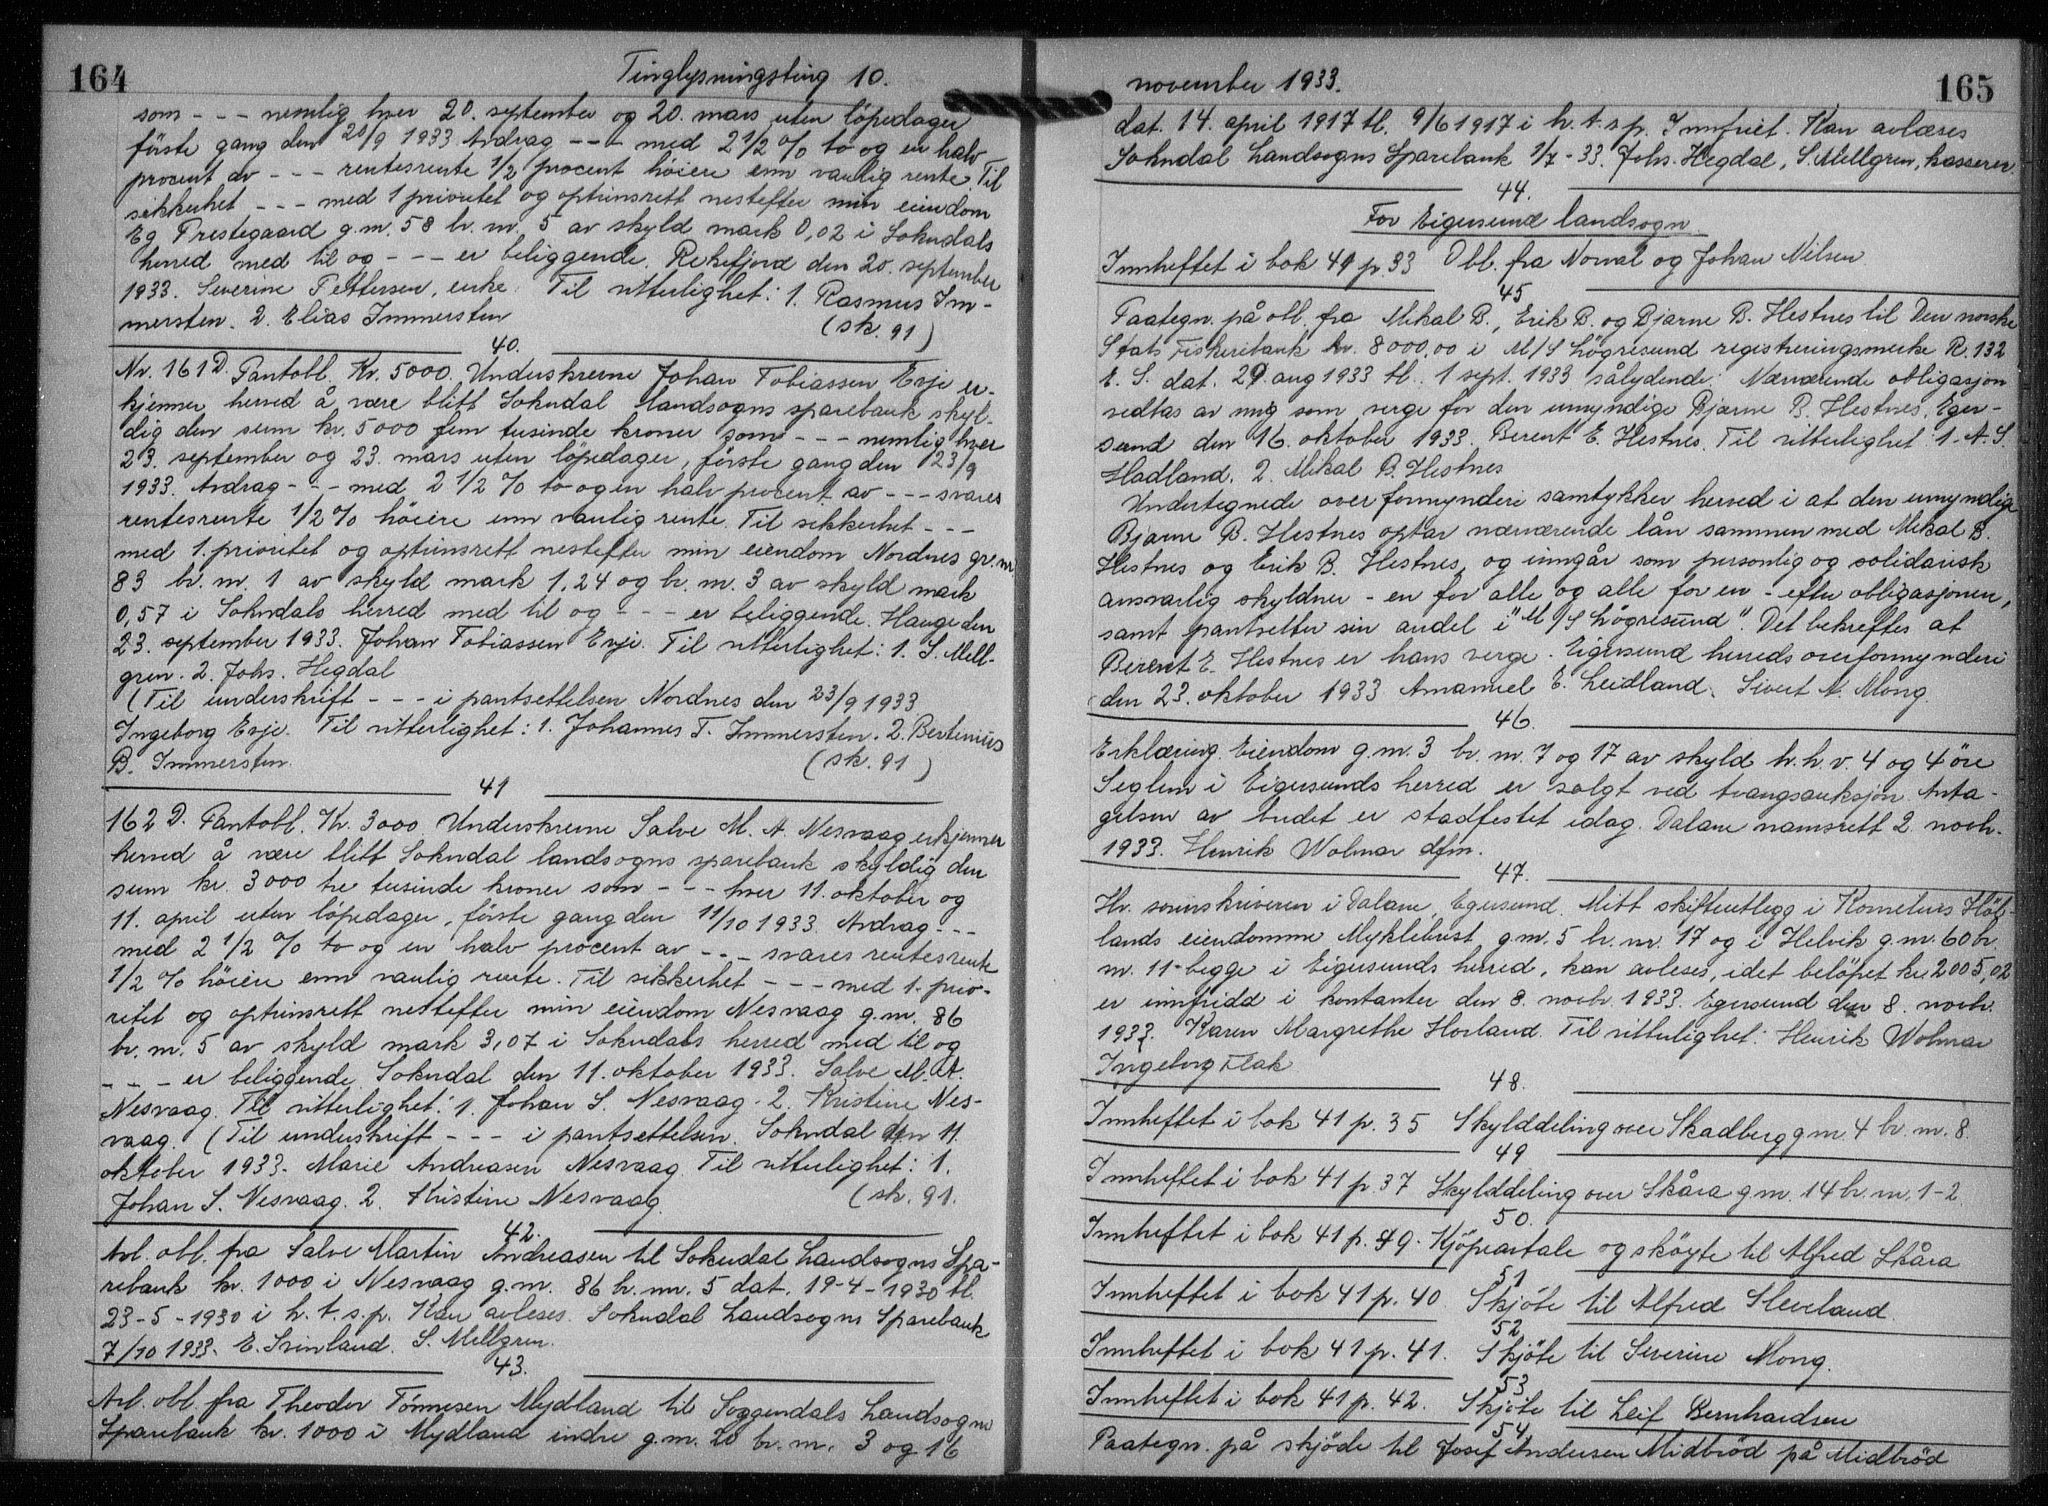 164
Tinglysningsting 10.
som - - - nemlig hver 20. september og 20. mars uten löpedager
förste gang den 20/9 1933 Avdrag - - - med 2 1/2 % to og en halv
procent av - - - rentesrente 1/2 procent höiere enn vanlig rente. Til
sikkerhet - - - med 1 prioritet og optrinsrett nestefter min eiendom
Eg Prestegaard g.nr. 58 br. nr. 5 av skyld mark 0,02 i Sokndals
herred med til og - - - er beliggende. Rekefjord den 20. september
1933. Severine Pettersen, enke. Til vitterlighet: 1. Rasmus Im-
mersten. 2. Elias Immersten (sk. 91)
40.
Nr. 161 D. Pantobl. Kr. 5000. Underskrevne Johan Tobiassen Evje er-
kjenner herved å være blitt Sokndal landsogns sparebank skyl-
dig den sum kr. 5000 fem tusinde kroner som - - - nemlig hver
23. september og 23. mars uten löpedager, förste gang den 23/9
1933. Avdrag - - - med 2 1/2 % to og en halv procent av - - - svares
rentesrente 1/2 % höiere enn vanlig rente. Til sikkerhet - - -
med 1. prioritet og optrinsrett nestefter min eiendom Nordnes gr. nr
83 br. nr. 1 av skyld mark 1,24 og br. nr. 3 av skyld mark
0,57 i Sokndals herred med til og - - - er beliggende. Hauge den
23. september 1933. Johan Tobiassen Evje. Til vitterlighet: 1. S. Mell-
gren. 2. Johs. Hegdal
(Til underskrift - - - i pantsettelsen Nordnes den 23/9 1933
Ingeborg Evje. Til vitterlighet: 1. Johannes T. Immersten. 2. Bertinius
B. Immersten. (sk. 91)
41
162 D. Pantobl. Kr. 3000. Underskrevne Salve M. A. Nesvaag erkjenner
herved å være blitt Sokndal landsogns sparebank skyldig den
sum kr. 3000 tre tusinde kroner som - - - hver 11. oktober og
11. april uten löpedager, förste gang den 11/10 1933. Avdrag - - -
med 2 1/2 % to og en halv procent av - - - svares rentesrente
1/2 % höiere enn vanlig rente. Til sikkerhet - - - med 1. prio-
ritet og optrinsrett nestefter min eiendom Nesvaag g.nr. 86
br. nr. 5 av skyld mark 3,07 i Sokndals herred med til og
- - - er beliggende. Sokndal den 11. oktober 1933. Salve M. A.
Nesvaag. Til vitterlighet: 1. Johan S. Nesvaag. 2. Kristine Nes-
vaag. (Til underskrift - - - i pantsettelsen. Sokndal den 11
oktober 1933. Marie Andreasen Nesvaag. Til vitterlighet: 1.
Johan S. Nesvaag. 2. Kristine Nesvaag. (sk. 91.
42.
Avl. obl. fra Salve Martin Andreasen til Sokndal Landsogns Spa-
rebank kr. 1000 i Nesvaag g.nr. 86 br. nr. 5 dat. 19-4-1930 tl.
23-5-1930 i h. t. s. p. Kan avleses. Sokndal Landsogns Sparebank
7/10 1933. E. Svinland. S. Mellgren.
43.
Avl. obl. fra Theodor Tönnesen Mydland til Soggendals Landsogns
Sparebank kr. 1000 i Mydland indre g.nr. 20 br. nr. 3 og 16
november 1933.
165
dat. 14. april 1917 tl. 9/6 1917 i h. t. s p. Innfriet. Kan avlæses
Sokndal Landsogns Sparebank 1/7-33. Johs. Hegdal, S. Mellgren, kasserer.
44.
For Eigersund landsogn
Innheftet i bok 41 p. 33 Obl. fra Norval og Johan Nilsen
45
Paategn. på obl. fra Mikal B., Erik B. og Bjarne B. Hestnes til Den norske
Stats Fiskeribank kr. 8000,00 i M/S Högresund registreringsmerke R. 132
E. S. dat. 29. aug 1933 tl. 1 sept. 1933 sålydende: Nærværende obligasjon
vedtas av mig som verge for den umyndige Bjarne B. Hestnes. Eger-
sund den 16. oktober 1933. Berent E. Hestnes. Til vitterlighet: 1. A. S.
Hadland. 2. Mikal B. Hestnes
Undertegnede overformynderi samtykker herved i at den umyndige
Bjarne B. Hestnes optar nærværende lån sammen med Mikal B.
Hestnes og Erik B. Hestnes, og inngår som personlig og solidarisk
ansvarlig skyldner - en for alle og alle for en - efter obligasjonen,
samt pantsetter sin andel i "M/S Högresund". Det bekreftes at
Berent E. Hestnes er hans verge. Eigersund herreds overformynderi
den 23. oktober 1933 Amanuel E. Leidland. Sivert A. Mong.
46.
Erklæring. Eiendom g.nr. 3 br. nr. 7 og 17 av skyld h. h. v. 4 og 4 öre
Seglem i Eigersunds herred er solgt ved tvangsauksjon. Anta-
gelsen av budet er stadfestet idag. Dalane namsrett 2. novb.
1933. Henrik Wolmar dfm.
47.
Hr. sorenskriveren i Dalane, Egersund. Mitt skifteutlegg i Kornelius Höl-
lands eiendomme Myklebust g.nr. 5 br. nr. 17 og i Helvik g.nr. 60 br.
nr. 11 begge i Eigersunds herred, kan avleses, idet belöpet kr. 2005,02
er innfridd i kontanter den 8. novbr. 1933. Egersund den 8. novbr.
1933. Karen Margrethe Hovland. Til vitterlighet: Henrik Wolmar
Ingeborg Flak
48.
Innheftet i bok 41 p. 35 Skylddeling over Skadberg g.nr. 4 br. nr. 8.
49
Innheftet i bok 41 p. 37 Skylddeling over Skåra g.nr. 14 br. nr. 1-2
50.
Innheftet i bok 41 p. 49. Kjöpeavtale og sköyte til Alfred Skåra
51
Innheftet i bok 41 p. 40 Skjöte til Alfred Sleveland.
52
Innheftet i bok 41 p. 41. Skjöte til Severine Mong.
53
Innheftet i bok 41 p. 42. Skjöte til Leif Bernhardsen
54
Paategn. på skjöde til Josef Andersen Midbröd på Midbröd